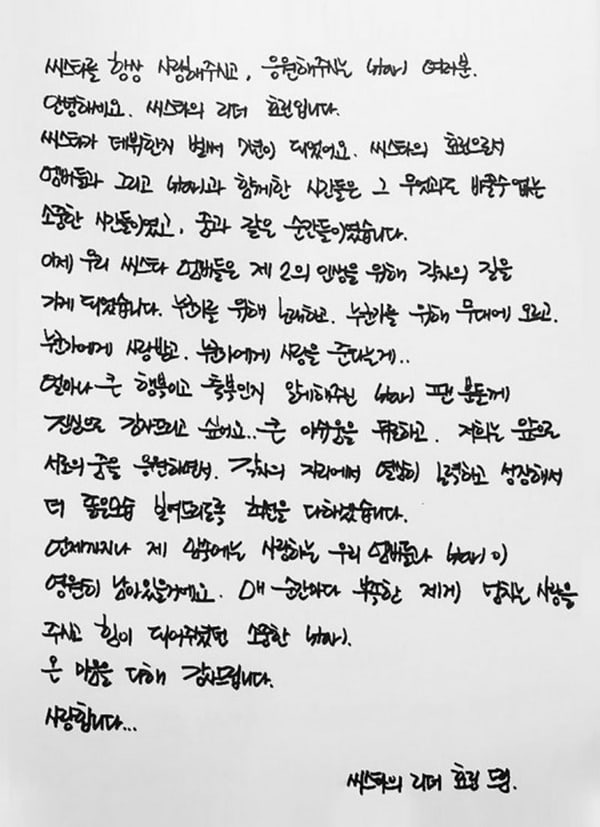 씨스타를 항상 사랑해주시고, 응원해주시는 스타1 여러분.
안녕하세요. 씨스타의 리더 효린입니다.
씨스타가 데뷔한지 벌써 7년이 되었어요. 씨스타의 효린으로서
멤버들과 그리고 스타1과 함께한 시간들은 그 무엇과도 바꿀수 없는
소중한 시간들이였고, 꿈과 같은 순간들이였습니다.
이제 우리 씨스타 멤버들은 제 2의 인생을 위해 각자의 길을
가게 되었습니다. 누군가를 위해 노래하고, 누군가를 위해 무대에 오르고,
누군가에게 사랑받고, 누군가에게 사랑을 준다는게..
얼마나 큰 행복이고 축복인지 알게해주신 스타1 팬 분들께
진심으로 감사드리고 싶어요.. 큰 아쉬움을 뒤로하고, 저희는 앞으로
서로의 꿈을 응원하면서, 각자의 자리에서 열심히 노력하고 성장해서
더 좋은모습 보여드리도록 최선을 다하겠습니다.
언제까지나 제 맘속에는 사랑하는 우리 멤버들과 스타1이
영원히 남아있을거예요. 매 순간마다 부족한 제게 넘치는 사랑을
주시고 힘이 되어주셨던 소중한 스타1.
온 마음을 다해 감사드립니다.
사랑합니다...
씨스타의 리더 효린 드림.